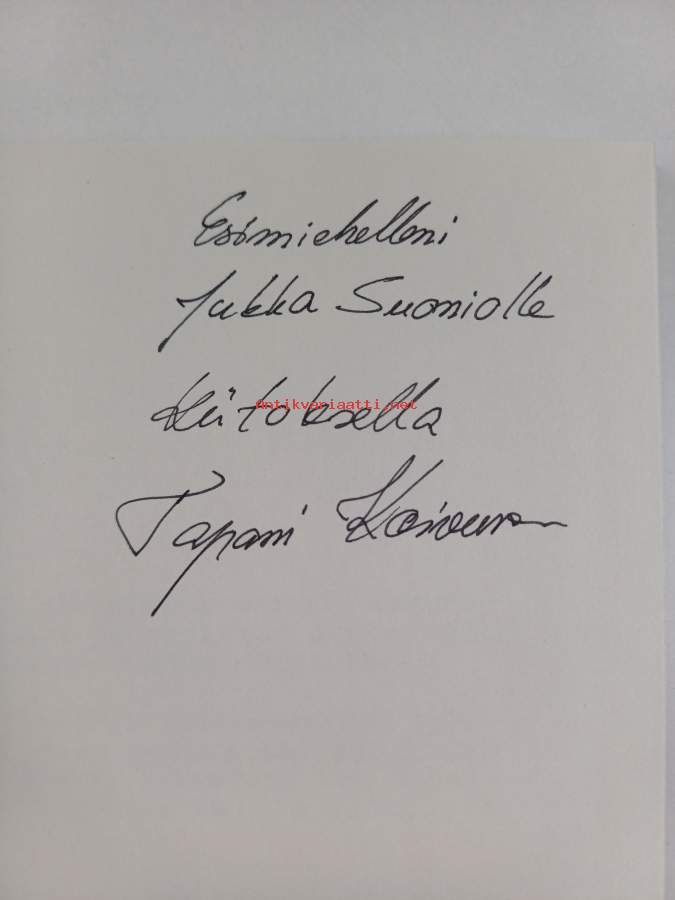 Esimiehelleni
Jukka Suoniolle
Kiitoksella
antikvariaatti.net
Tapani